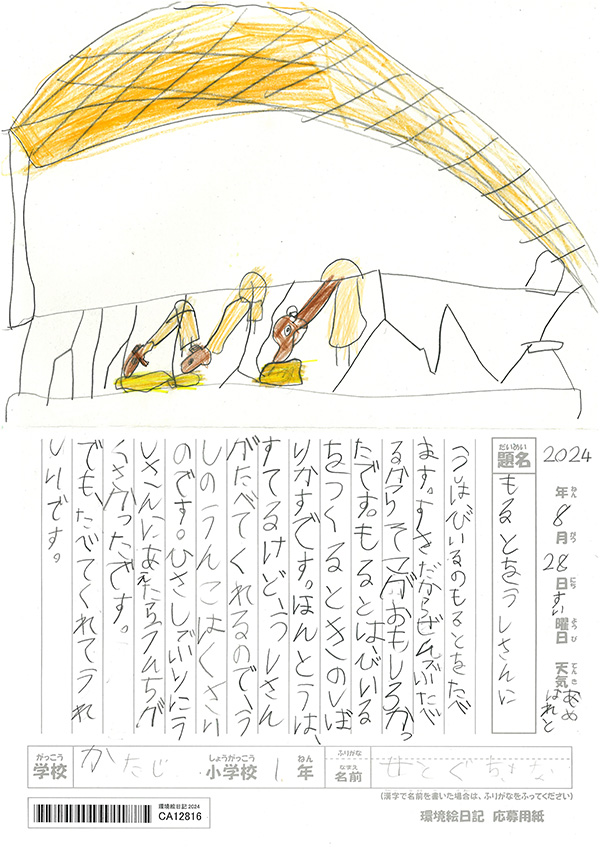 2024年 8月 28日 すい曜日 天気 あめ
はれと
ねん がつ にち ようび てんき
だいめい
題名
もるとをうしさんに
うしはびいるのもるとをたべ
ます。すきだからぜんぶたべ
るからそこがおもしろかっ
たです。もるとは、びいる
をつくるときのしぼ
りかすです。ほんとうは、
すてるけど、うしさん
がたべてくれるので、う
しのうんこはくさい
のです。ひさしぶりにう
しさんにあえたらうんちが
くさかったです。
でも、たべてくれてうれ
しいです。
がっこう しょうがっこう ねん ふりがな
学校 かたじ 小学校 1年
なまえ
名前 せとぐち
(漢字で名前を書いた場合は、ふりがなをふってください)
環境絵日記 2024
CA12816
環境絵日記 応募用紙